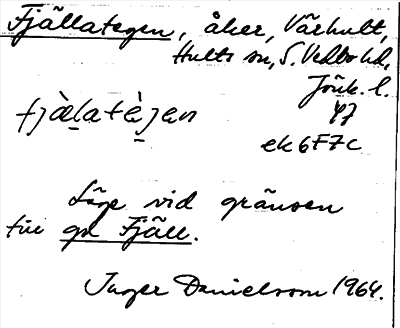 Fjällategen, åker, Vårhult,
Hults sn, S. Vedbo hd,
Jönk. l.
fjàḷatè̱jen
ek 6F7c
Läge vid gränsen
till gd Fjäll.
Inger Danielsson 1964.